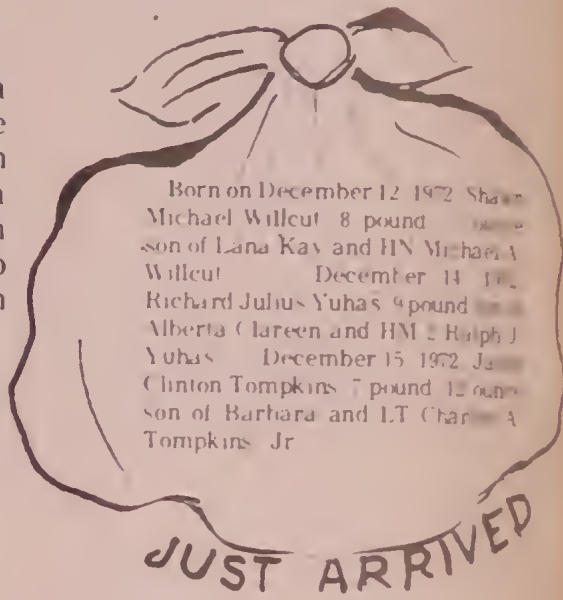 Born on December 12 1972 Shawn
Michael Willcut 8 pound
son of Lana Kay and HN Michael A
Willcut December 14
Richard Julius Yuhas 9 pound
Alberta Clareen and HM 2 Ralph J
Yuhas December 15 1972
Clinton Tompkins 7 pound 12 ounce
son of Barbara and LT Charles A
Tompkins Jr
JUST ARRIVED